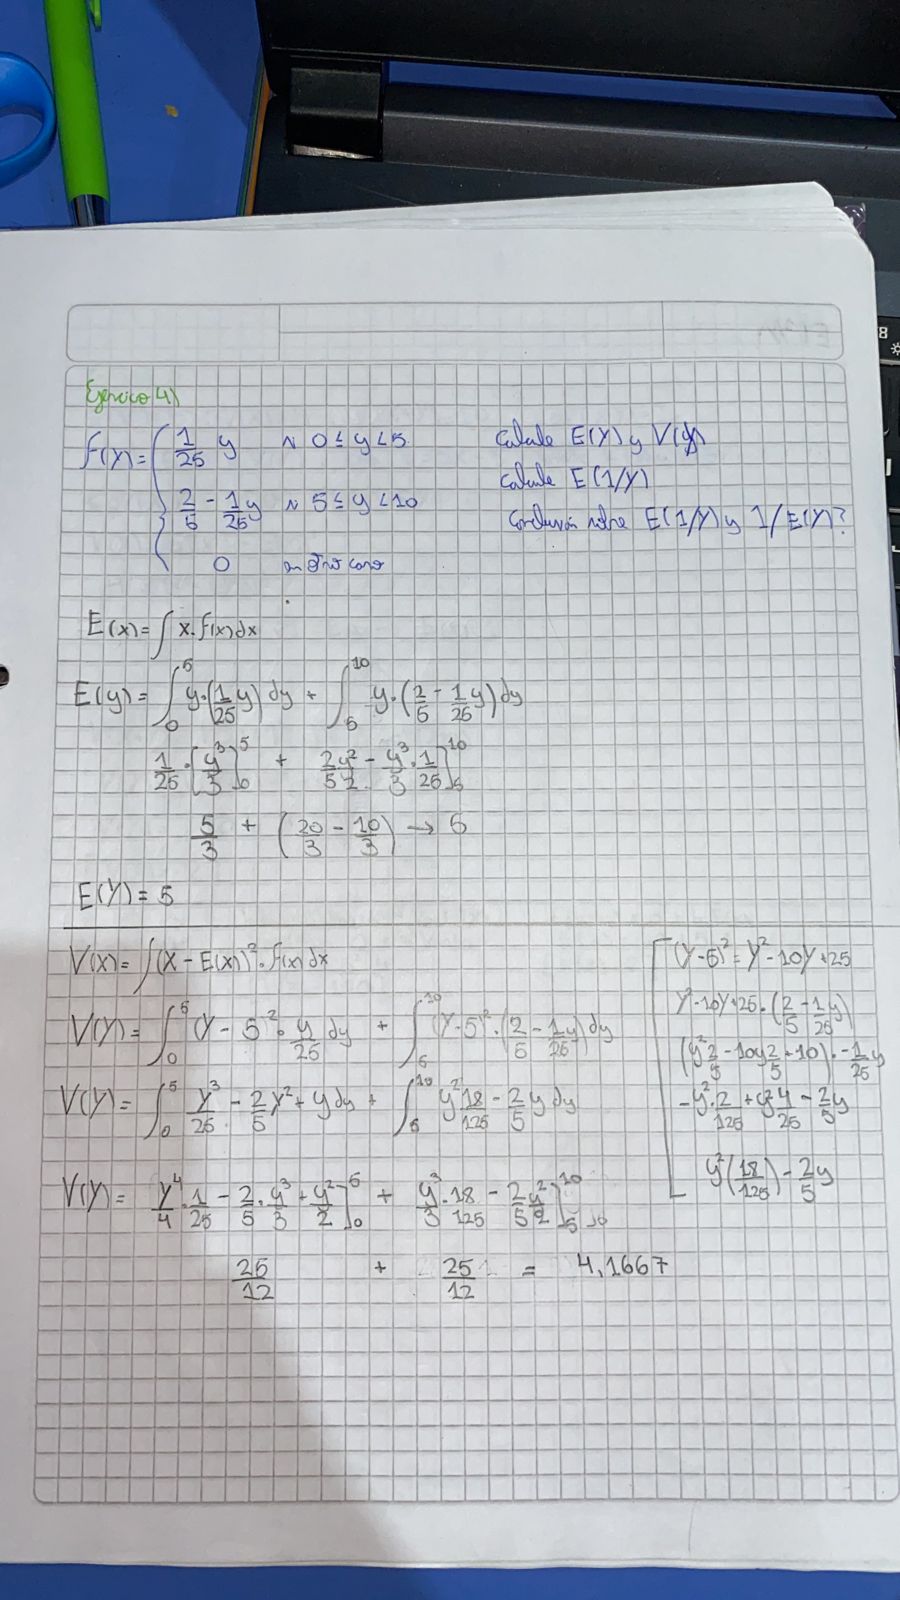 Ejercicio 4)
f(y) = { 1/25 y si 0 ≤ y < 5 Calcule E(Y) y V(Y)
2/5 - 1/25 y si 5 ≤ y < 10 Calcule E(1/Y)
Conclusión sobre E(1/Y) y 1/E(Y)?
0 en otro caso
E(x) = ∫ x · f(x) dx
E(y) = ∫₀⁵ y · (1/25 y) dy + ∫₅¹⁰ y · (2/5 - 1/25 y) dy
1/25 · [y³/3]₀⁵ + 2/5 y²/2 - y³/3 · 1/25]₅¹⁰
5/3 + (20/3 - 10/3) → 5
E(Y) = 5
V(x) = ∫(x - E(x))² · f(x) dx
V(Y) = ∫₀⁵ (Y - 5)² · y/25 dy + ∫₅¹⁰ (Y - 5)² · (2/5 - 1/25 y) dy
V(Y) = ∫₀⁵ y³/25 - 2/5 y² + y dy + ∫₅¹⁰ y² 18/125 - 2/5 y dy
V(Y) = y⁴/4 · 1/25 - 2/5 · y³/3 + y²/2]₀⁵ + y³/3 · 18/125 - 2/5 y²/2]₅¹⁰
25/12 + 25/12 = 4,1667
(Y - 5)² = Y² - 10Y + 25
Y² - 10Y + 25 · (2/5 - 1/25 y)
(y² 2/5 - 10y 2/5 + 10) · -1/25 y
- y² · 2/125 + y² 4/25 - 2/5 y
y² (18/125) - 2/5 y